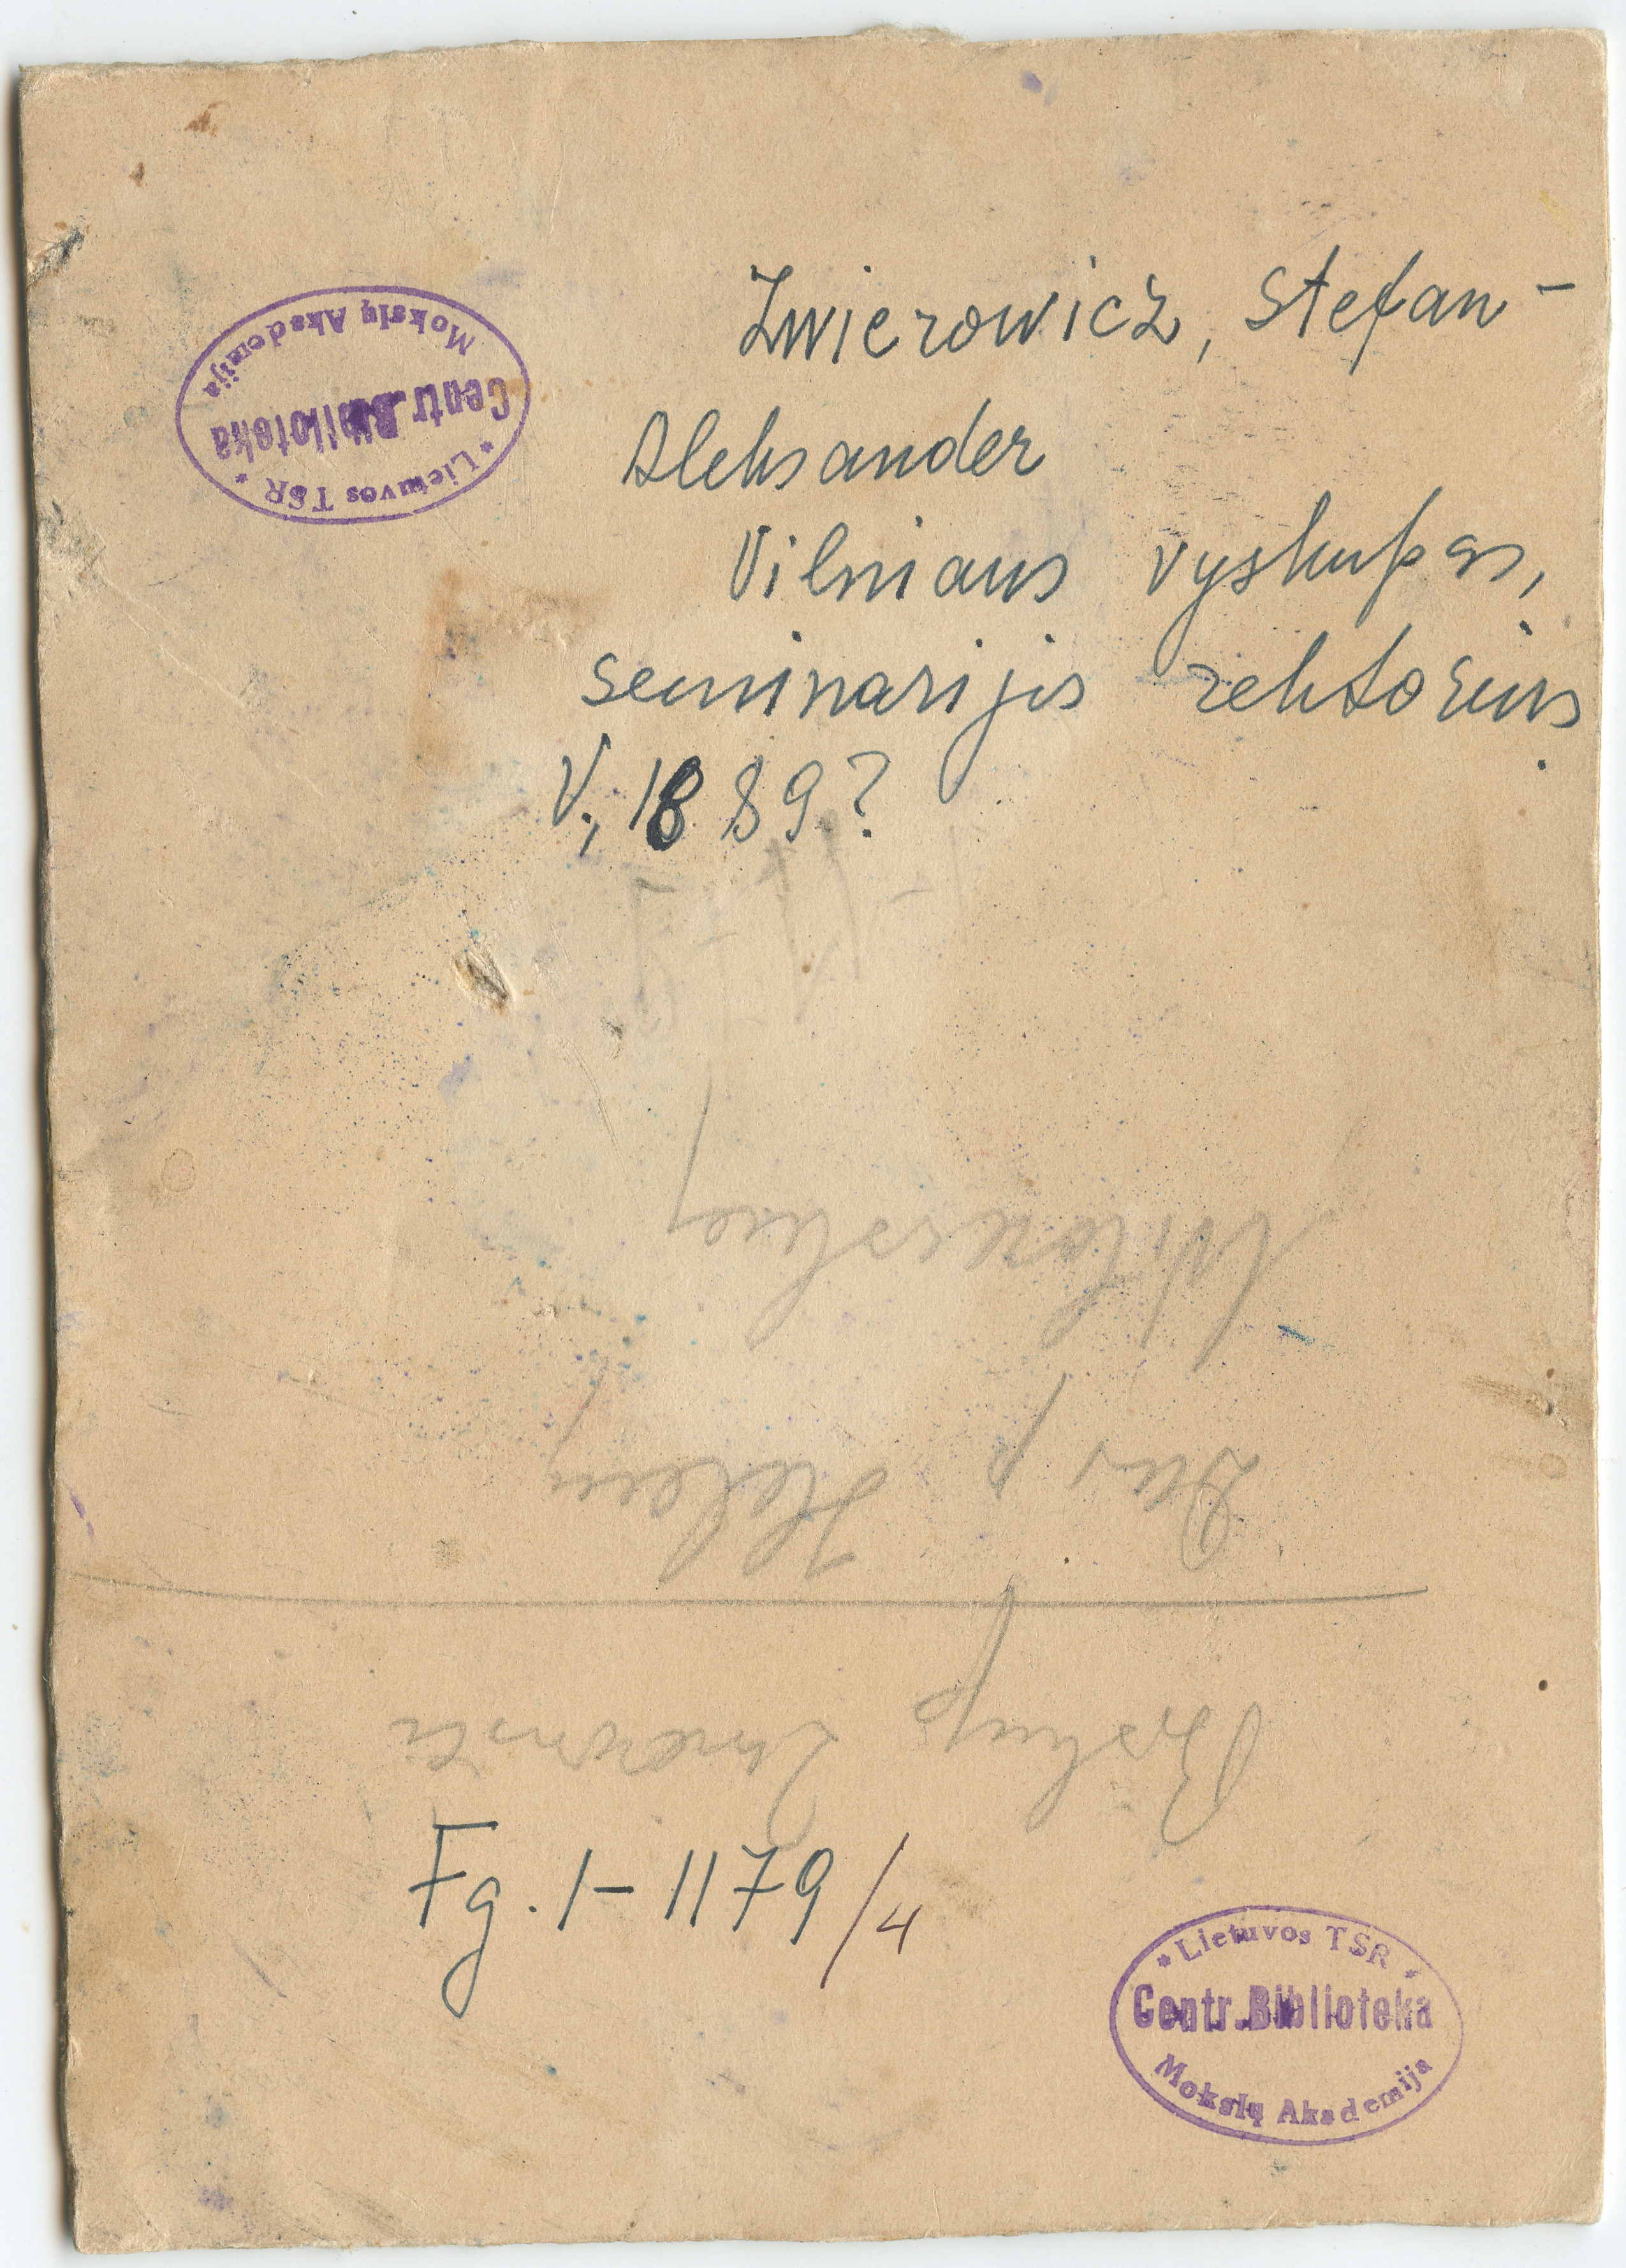 Zwierowicz, Stefan-
Aleksander
Vilniaus vyskupas,
seminarijis rektorius.
V., 1889?
Lietuvos TSR
Centr. Biblioteka
Mokslų Akademija
Biskup
Dar p. Heleny
Fg. 1-1179/4
Lietuvos TSR
Centr. Biblioteka
Mokslų Akademija